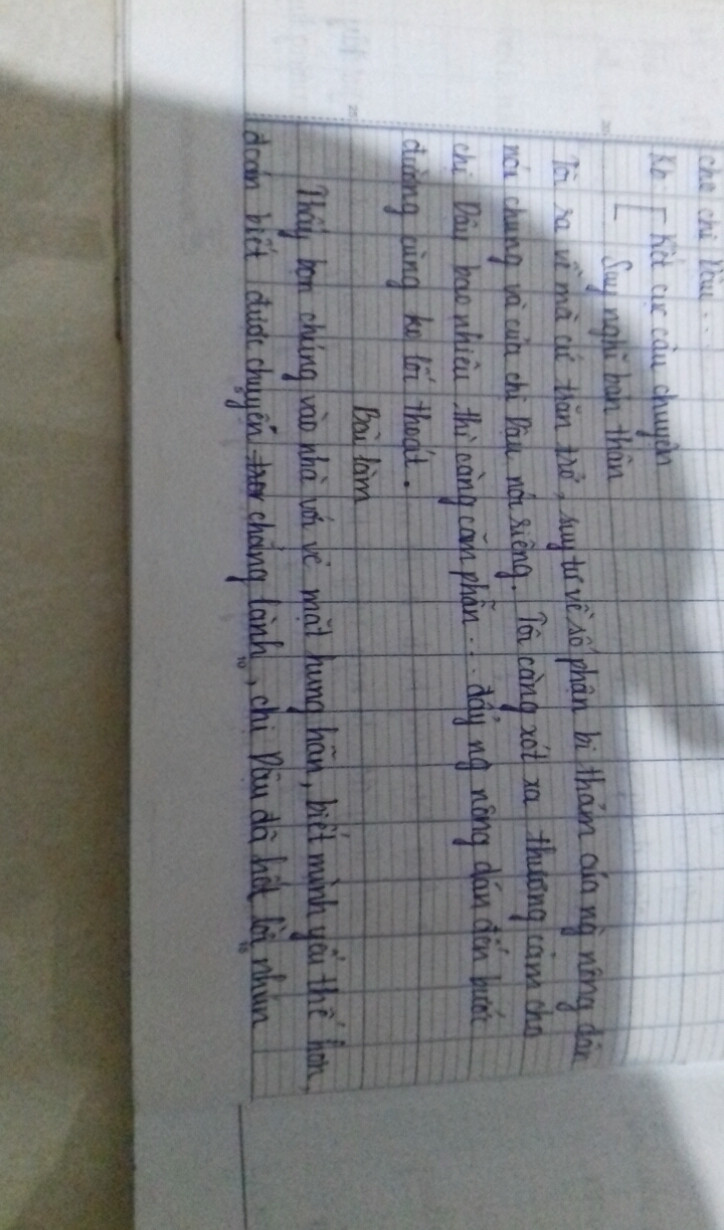 che chị Dậu...
Kb [ Kết cục câu chuyện
Suy nghĩ bản thân
Tôi ra về mà cứ trăn trở, suy tư về số phận bi thảm của ng nông dân
nói chung và của chị Dậu nói riêng. Tôi càng xót xa thương cảm cho
chị Dậu bao nhiêu thì càng căm phẫn... đẩy ng nông dân đến bước
đường cùng ko lối thoát.
Bài làm
Thấy bọn chúng vào nhà với vẻ mặt hung hãn, biết mình yếu thế hơn,
đoán biết được chuyện chẳng lành, chị Dậu đã hết lời nhún